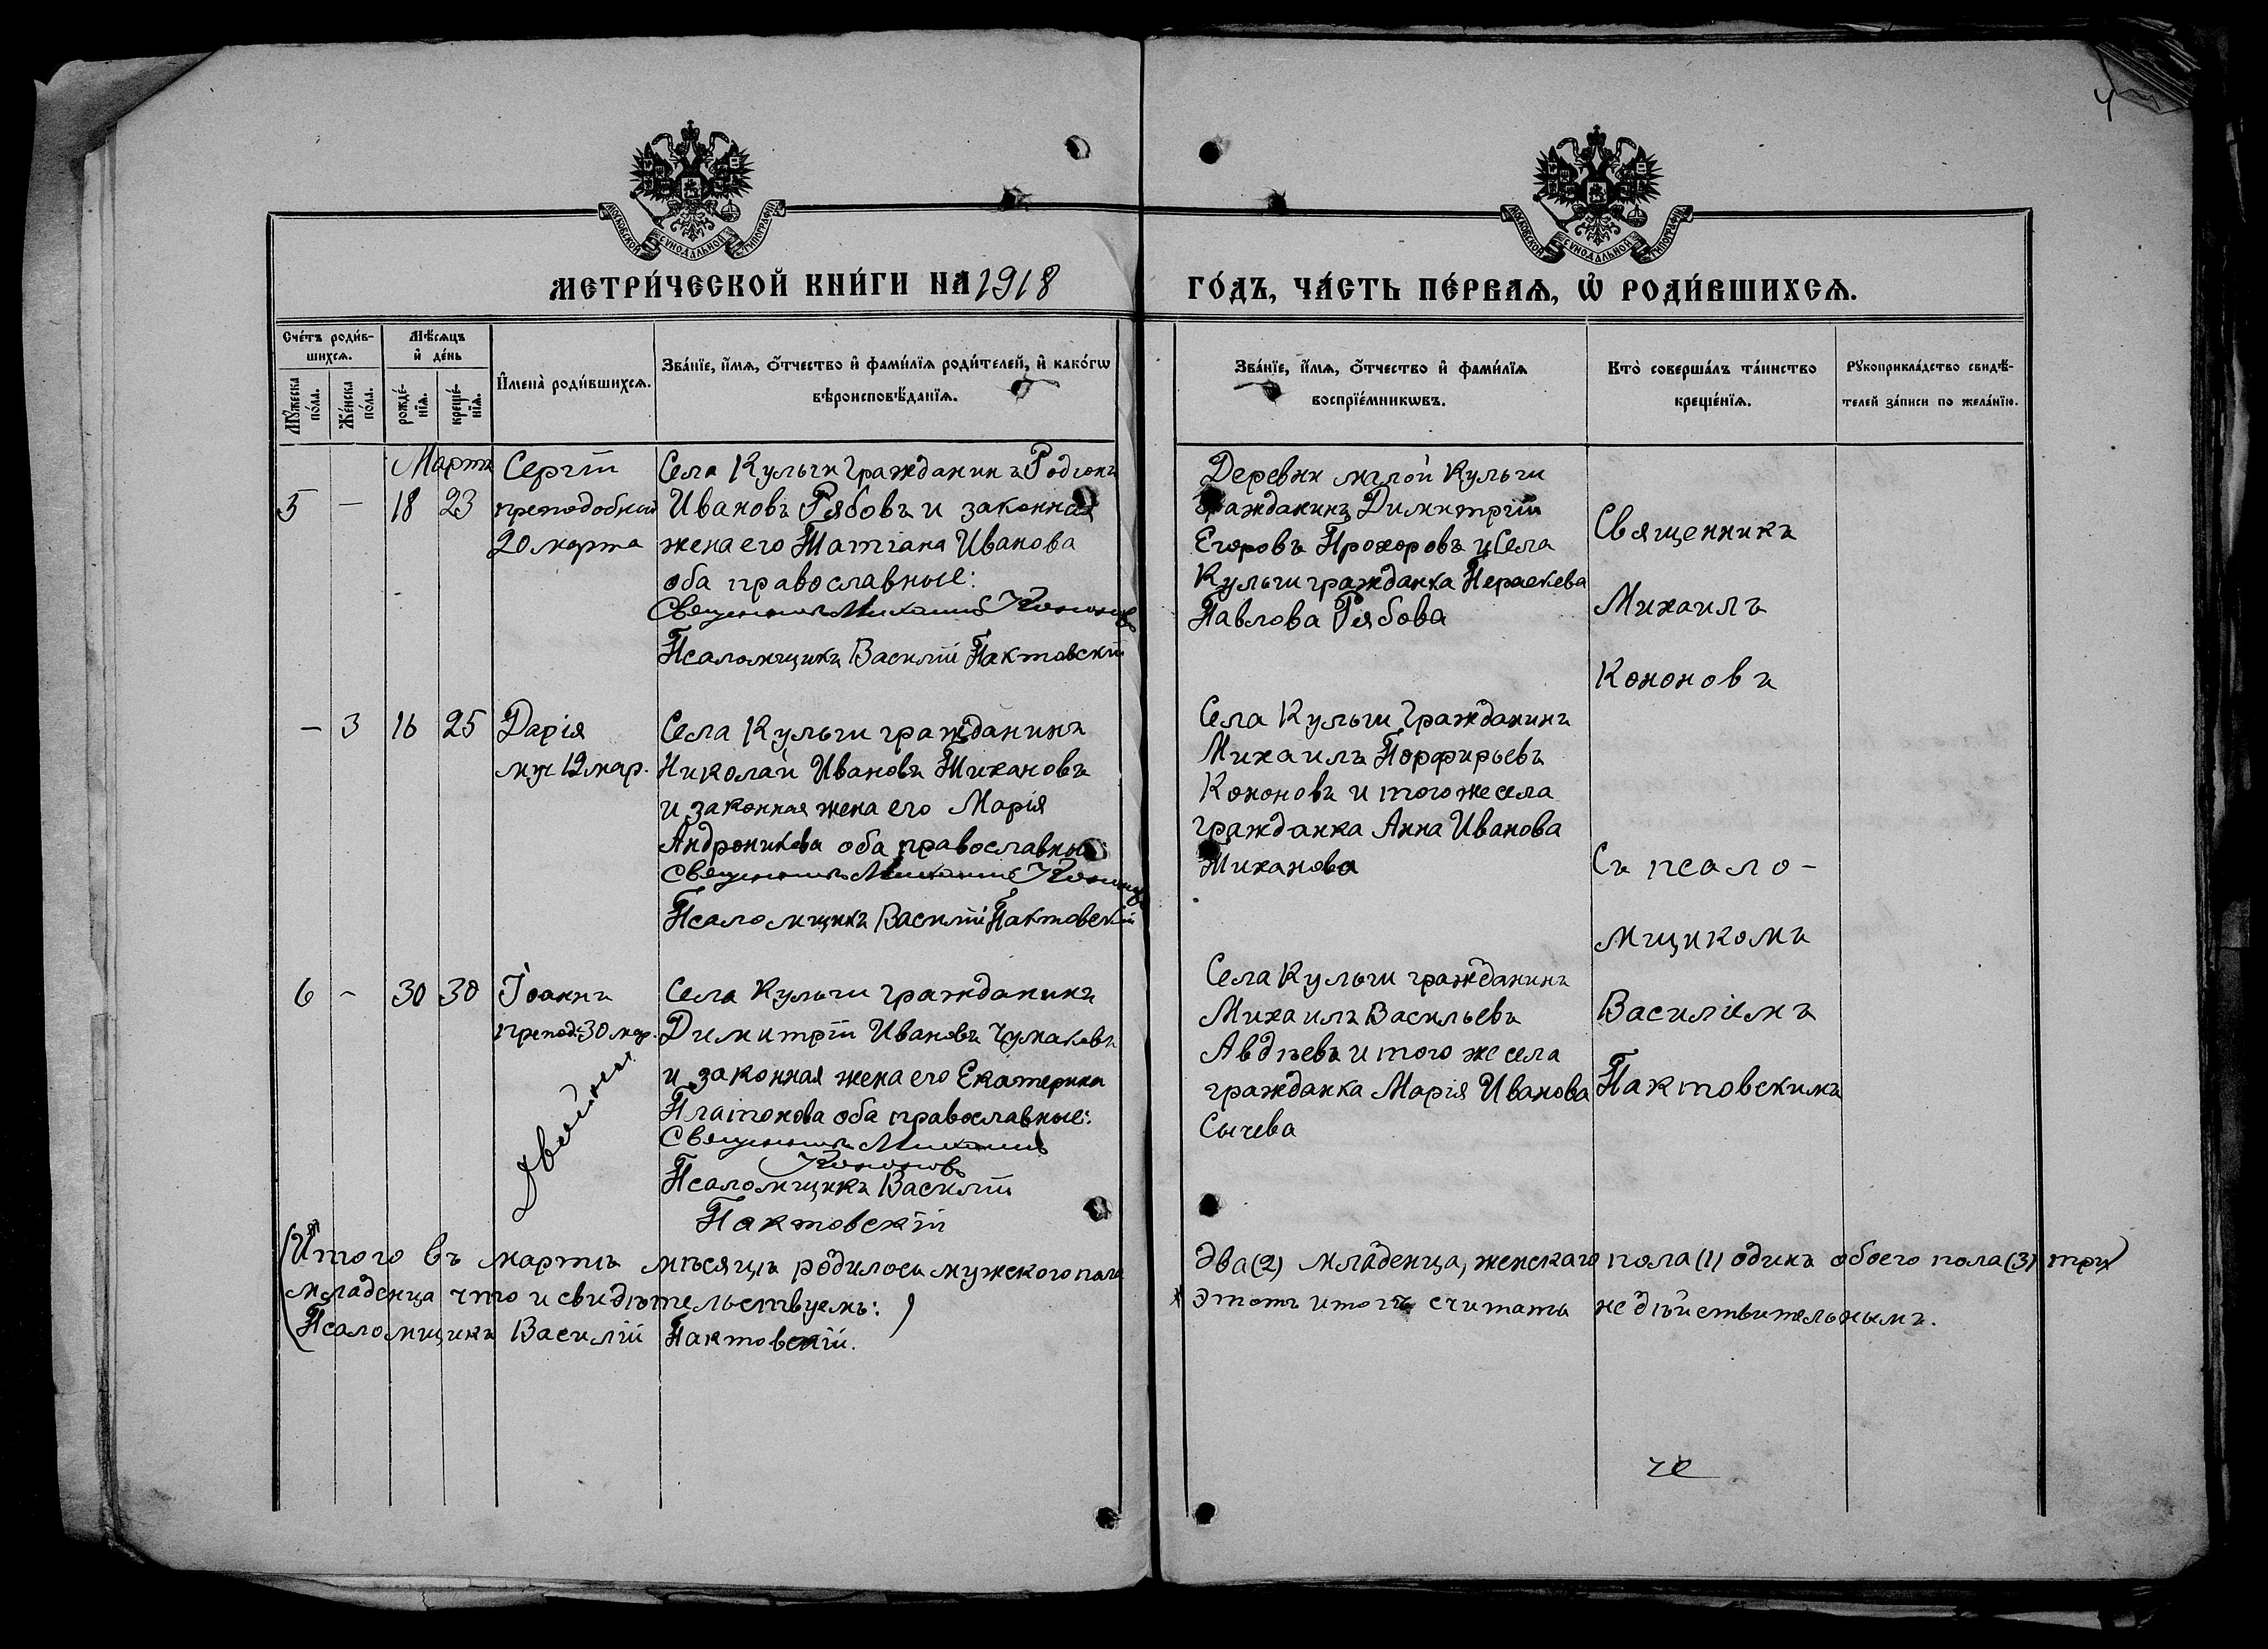 4
МОСКОВСКОЙ СУНОДАЛЬНОЙ ТИПОГРАФІИ
МОСКОВСКОЙ СУНОДАЛЬНОЙ ТИПОГРАФІИ
МЕТРИ́ЧЕСКОЙ КНИ́ГИ НА 1918
ГО́ДЪ, ЧА́СТЬ ПЕ́РВАѦ, Ѡ҆ РОДИ́ВШИХСѦ.
Сче́тъ роди́в-
шихсѧ.
Мѣ́сѧцъ
и҆ де́нь
Мꙋ́жеска
по́ла.
Же́нска
по́ла.
рожде́-
нїѧ.
креще́-
нїѧ.
И҆мена̀ роди́вшихсѧ.
Зва́нїе, и҆́мѧ, ѻ҆́тчество и҆ фами́лїѧ роди́телей, и҆ како́гѡ
вѣроисповѣ́данїѧ.
Зва́нїе, и҆́мѧ, ѻ҆́тчество и҆ фами́лїѧ
воспрїе́мникѡвъ.
Кто̀ соверша́лъ та́инство
креще́нїѧ.
Рꙋкоприкла́дство свидѣ́-
телей за́писи по жела́нїю.
Марта
5 — 18 23
Сергій
преподобный
20 марта
Села Кульчи Гражданинъ Родіонъ
Ивановъ Рябовъ и законная
жена его Татіана Иванова
оба православные:
Священникъ Михаилъ Кононовъ
Псаломщикъ Василій Пактовскій
Деревни малой Кульчи
Гражданинъ Димитрій
Егоровъ Прохоровъ и Села
Кульчи гражданка Параскева
Павлова Рябова
— 3 16 25
Дарія
муч 19 мар.
Села Кульчи гражданинъ
Николай Ивановъ Тихановъ
и законная жена его Марія
Андроникова оба православные:
Священникъ Михаилъ Кононовъ
Псаломщикъ Василій Пактовскій
Села Кульчи Гражданинъ
Михаилъ Порфирьевъ
Кононовъ и того же села
гражданка Анна Иванова
Тиханова
6 – 30 30
Іоаннъ
препод: 30 мар.
Села Кульчи Гражданинъ
Димитрій Ивановъ Чумаковъ
и законная жена его Екатерина
Платонова оба православные:
Священникъ Михаилъ
Кононовъ
Псаломщикъ Василій
Пактовскій
Села Кульчи гражданинъ
Михаилъ Васильевъ
Авдѣевъ и того же села
гражданка Марія Иванова
Сычева
Священникъ
Михаилъ
Кононовъ
Съ псало-
мщикомъ
Василіемъ
Пактовскимъ
(Итого въ мартѣ мѣсяцѣ родилось мужского пола два (2) младенца, женскаго пола (1) одинъ обоего пола (3) три
младенца что и свидѣтельствуемъ:)
х этотъ итогъ считать недѣйствительнымъ.
(Псаломщикъ Василій Пактовскій.